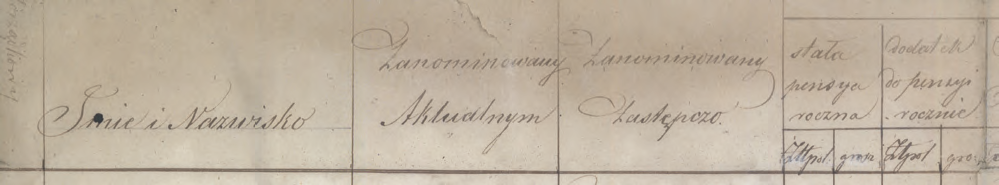 Imie i Nazwisko
Zanominowany
Aktualnym
Zanominowany
Zastępczo.
stała
pensya
roczna
dodatek
do pensyi
rocznie
Złpol grosz Złpol gro